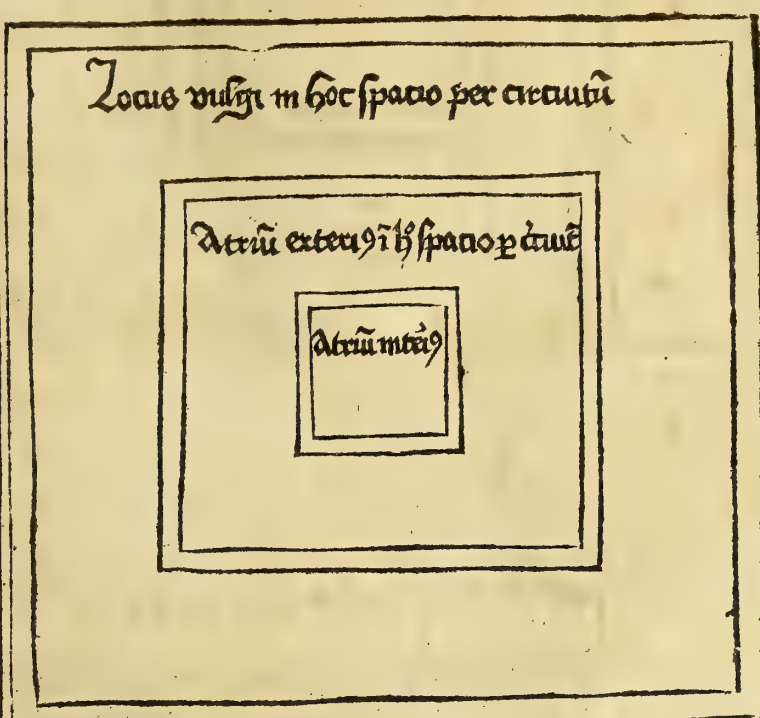 Locus vulgi in hoc spacio per circuitū
Atriū exteriꝰ ī hͦ spacio ꝑ ci̾cuitū
Atriū inte̾iꝰ